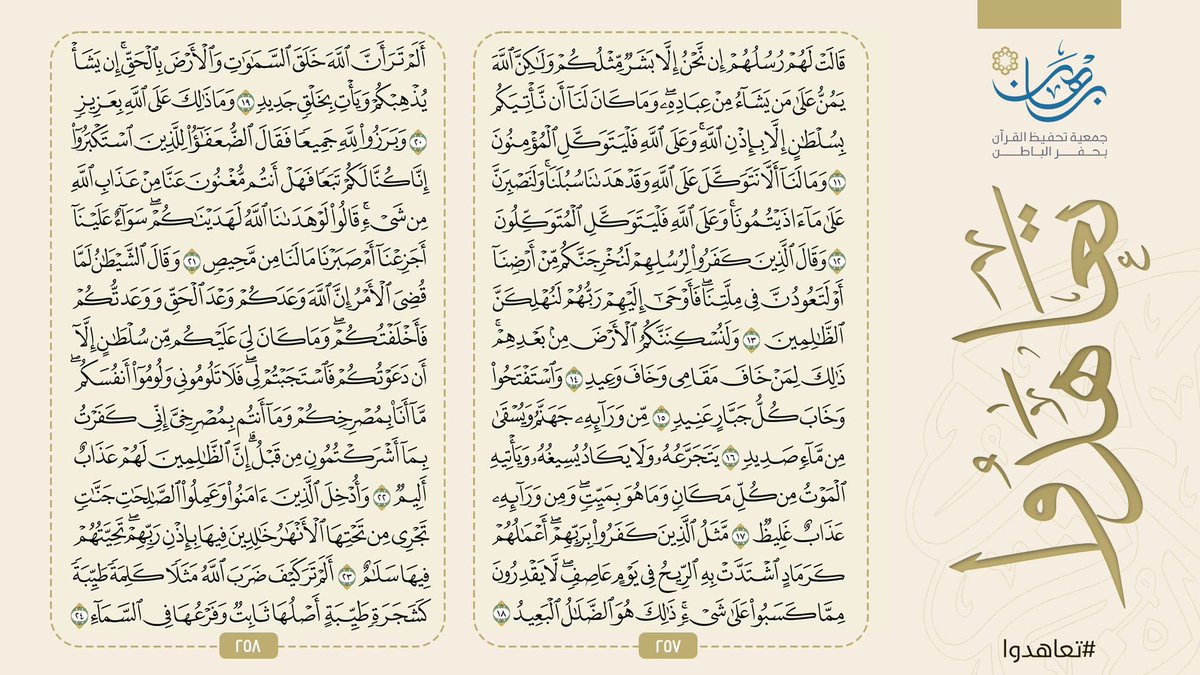 برهان
جمعية تحفيظ القرآن
بحفر الباطن
تعاهدوا
#تعاهدوا
قَالَتْ لَهُمْ رُسُلُهُمْ إِن نَّحْنُ إِلَّا بَشَرٌ مِّثْلُكُمْ وَلَٰكِنَّ ٱللَّهَ
يَمُنُّ عَلَىٰ مَن يَشَآءُ مِنْ عِبَادِهِۦۖ وَمَا كَانَ لَنَآ أَن نَّأْتِيَكُم
بِسُلْطَٰنٍ إِلَّا بِإِذْنِ ٱللَّهِۚ وَعَلَى ٱللَّهِ فَلْيَتَوَكَّلِ ٱلْمُؤْمِنُونَ
١١ وَمَا لَنَآ أَلَّا نَتَوَكَّلَ عَلَى ٱللَّهِ وَقَدْ هَدَىٰنَا سُبُلَنَاۚ وَلَنَصْبِرَنَّ
عَلَىٰ مَآ ءَاذَيْتُمُونَاۚ وَعَلَى ٱللَّهِ فَلْيَتَوَكَّلِ ٱلْمُتَوَكِّلُونَ
١٢ وَقَالَ ٱلَّذِينَ كَفَرُوا۟ لِرُسُلِهِمْ لَنُخْرِجَنَّكُم مِّنْ أَرْضِنَآ
أَوْ لَتَعُودُنَّ فِى مِلَّتِنَاۖ فَأَوْحَىٰٓ إِلَيْهِمْ رَبُّهُمْ لَنُهْلِكَنَّ
ٱلظَّٰلِمِينَ ١٣ وَلَنُسْكِنَنَّكُمُ ٱلْأَرْضَ مِنۢ بَعْدِهِمْۚ
ذَٰلِكَ لِمَنْ خَافَ مَقَامِى وَخَافَ وَعِيدِ ١٤ وَٱسْتَفْتَحُوا۟
وَخَابَ كُلُّ جَبَّارٍ عَنِيدٍ ١٥ مِّن وَرَآئِهِۦ جَهَنَّمُ وَيُسْقَىٰ
مِن مَّآءٍ صَدِيدٍ ١٦ يَتَجَرَّعُهُۥ وَلَا يَكَادُ يُسِيغُهُۥ وَيَأْتِيهِ
ٱلْمَوْتُ مِن كُلِّ مَكَانٍ وَمَا هُوَ بِمَيِّتٍۖ وَمِن وَرَآئِهِۦ
عَذَابٌ غَلِيظٌ ١٧ مَّثَلُ ٱلَّذِينَ كَفَرُوا۟ بِرَبِّهِمْۖ أَعْمَٰلُهُمْ
كَرَمَادٍ ٱشْتَدَّتْ بِهِ ٱلرِّيحُ فِى يَوْمٍ عَاصِفٍۖ لَّا يَقْدِرُونَ
مِمَّا كَسَبُوا۟ عَلَىٰ شَىْءٍۚ ذَٰلِكَ هُوَ ٱلضَّلَٰلُ ٱلْبَعِيدُ ١٨
٢٥٧
أَلَمْ تَرَ أَنَّ ٱللَّهَ خَلَقَ ٱلسَّمَٰوَٰتِ وَٱلْأَرْضَ بِٱلْحَقِّۚ إِن يَشَأْ
يُذْهِبْكُمْ وَيَأْتِ بِخَلْقٍ جَدِيدٍ ١٩ وَمَا ذَٰلِكَ عَلَى ٱللَّهِ بِعَزِيزٍ
٢٠ وَبَرَزُوا۟ لِلَّهِ جَمِيعًا فَقَالَ ٱلضُّعَفَٰٓؤُا۟ لِلَّذِينَ ٱسْتَكْبَرُوٓا۟
إِنَّا كُنَّا لَكُمْ تَبَعًا فَهَلْ أَنتُم مُّغْنُونَ عَنَّا مِنْ عَذَابِ ٱللَّهِ
مِن شَىْءٍۚ قَالُوا۟ لَوْ هَدَىٰنَا ٱللَّهُ لَهَدَيْنَٰكُمْۖ سَوَآءٌ عَلَيْنَآ
أَجَزِعْنَآ أَمْ صَبَرْنَا مَا لَنَا مِن مَّحِيصٍ ٢١ وَقَالَ ٱلشَّيْطَٰنُ لَمَّا
قُضِىَ ٱلْأَمْرُ إِنَّ ٱللَّهَ وَعَدَكُمْ وَعْدَ ٱلْحَقِّ وَوَعَدتُّكُمْ
فَأَخْلَفْتُكُمْۖ وَمَا كَانَ لِىَ عَلَيْكُم مِّن سُلْطَٰنٍ إِلَّآ
أَن دَعَوْتُكُمْ فَٱسْتَجَبْتُمْ لِىۖ فَلَا تَلُومُونِى وَلُومُوٓا۟ أَنفُسَكُمۖ
مَّآ أَنَا۠ بِمُصْرِخِكُمْ وَمَآ أَنتُم بِمُصْرِخِىَّ إِنِّى كَفَرْتُ
بِمَآ أَشْرَكْتُمُونِ مِن قَبْلُۗ إِنَّ ٱلظَّٰلِمِينَ لَهُمْ عَذَابٌ
أَلِيمٌ ٢٢ وَأُدْخِلَ ٱلَّذِينَ ءَامَنُوا۟ وَعَمِلُوا۟ ٱلصَّٰلِحَٰتِ جَنَّٰتٍ
تَجْرِى مِن تَحْتِهَا ٱلْأَنْهَٰرُ خَٰلِدِينَ فِيهَا بِإِذْنِ رَبِّهِمْۖ تَحِيَّتُهُمْ
فِيهَا سَلَٰمٌ ٢٣ أَلَمْ تَرَ كَيْفَ ضَرَبَ ٱللَّهُ مَثَلًا كَلِمَةً طَيِّبَةً
كَشَجَرَةٍ طَيِّبَةٍ أَصْلُهَا ثَابِتٌ وَفَرْعُهَا فِى ٱلسَّمَآءِ ٢٤
٢٥٨